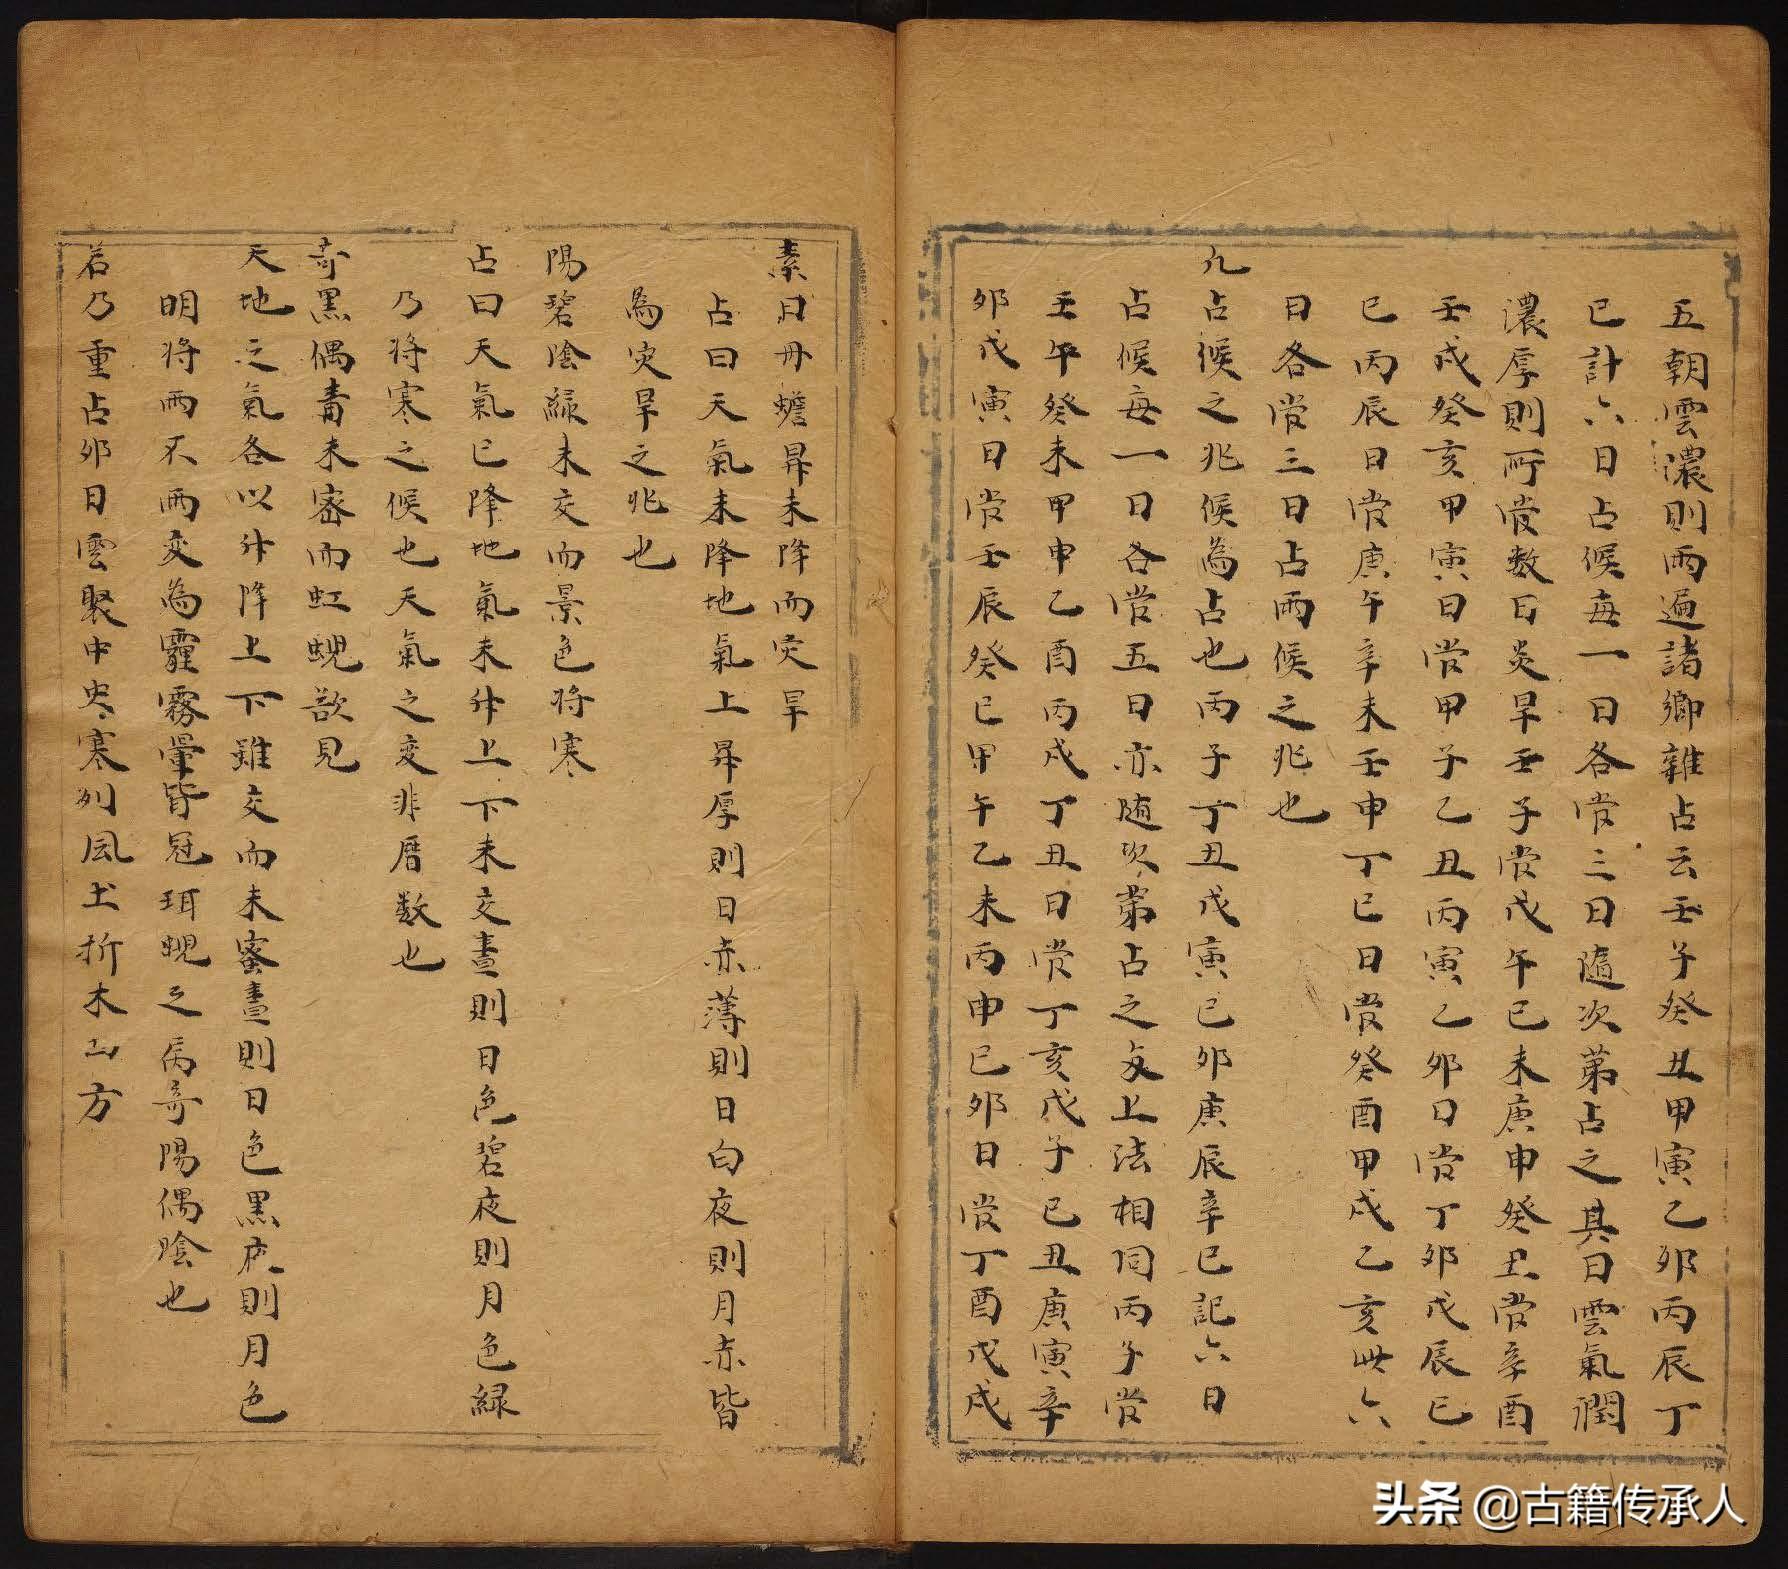 五朝雲濃則雨遍諸鄉雜占云壬子癸丑甲寅乙卯丙辰丁
巳計六日占候每一日各當三日隨次第占之其日雲氣潤
濃厚則所當数日炎旱壬子當戊午己未庚申癸丑當辛酉
壬戌癸亥甲寅日當甲子乙丑丙寅乙卯日當丁卯戊辰己
巳丙辰日當庚午辛未壬申丁巳日當癸酉甲戌乙亥此六
日各當三日占雨候之兆也
凡占候之兆候為占也丙子丁丑戊寅己卯庚辰辛巳記六日
占候每一日各當五日亦随次第占之与上法相同丙子當
壬午癸未甲申乙酉丙戌丁丑日當丁亥戊子己丑庚寅辛
卯戊寅日當壬辰癸巳甲午乙未丙申己卯日當丁酉戊戌
素日丹蟾昇未降而灾旱
占曰天氣未降地氣上昇厚則日赤薄則日白夜則月赤皆
為灾旱之兆也
陽碧陰緑未交而景色将寒
占曰天氣已降地氣未升上下未交晝則日色碧夜則月色緑
乃将寒之候也天氣之变非曆数也
奇黑偶青未密而虹蜺欲見
天地之氣各以升降上下雖交而未蜜晝則日色黑夜則月色
明将雨不雨变為霾霧暈皆冠珥蜺之為奇陽偶陰也
若乃重占卯日雲聚中央寒列風土折木山方
头条 @古籍传承人